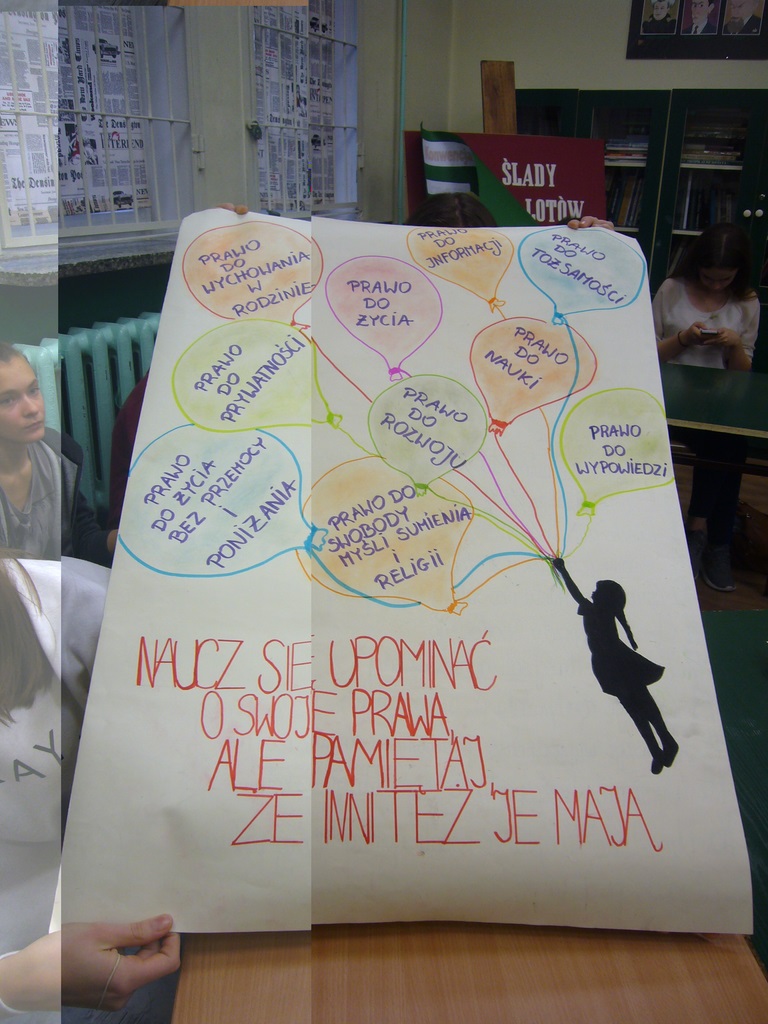 ŚLADY
LOTÓW
PRAWO
DO
WYCHOWANIA
W
RODZINIE
PRAWO
DO
ŻYCIA
PRAWO
DO
INFORMACJI
PRAWO
DO
TOŻSAMOŚCI
PRAWO
DO
PRYWATNOŚCI
PRAWO
DO
ROZWOJU
PRAWO
DO
NAUKI
PRAWO
DO
WYPOWIEDZI
PRAWO
DO ŻYCIA
BEZ PRZEMOCY
I
PONIŻANIA
PRAWO DO
SWOBODY
MYŚLI SUMIENIA
I
RELIGII
NAUCZ SIĘ UPOMINAĆ
O SWOJE PRAWA,
ALE PAMIĘTAJ,
ŻE INNI TEŻ JE MAJĄ
AY